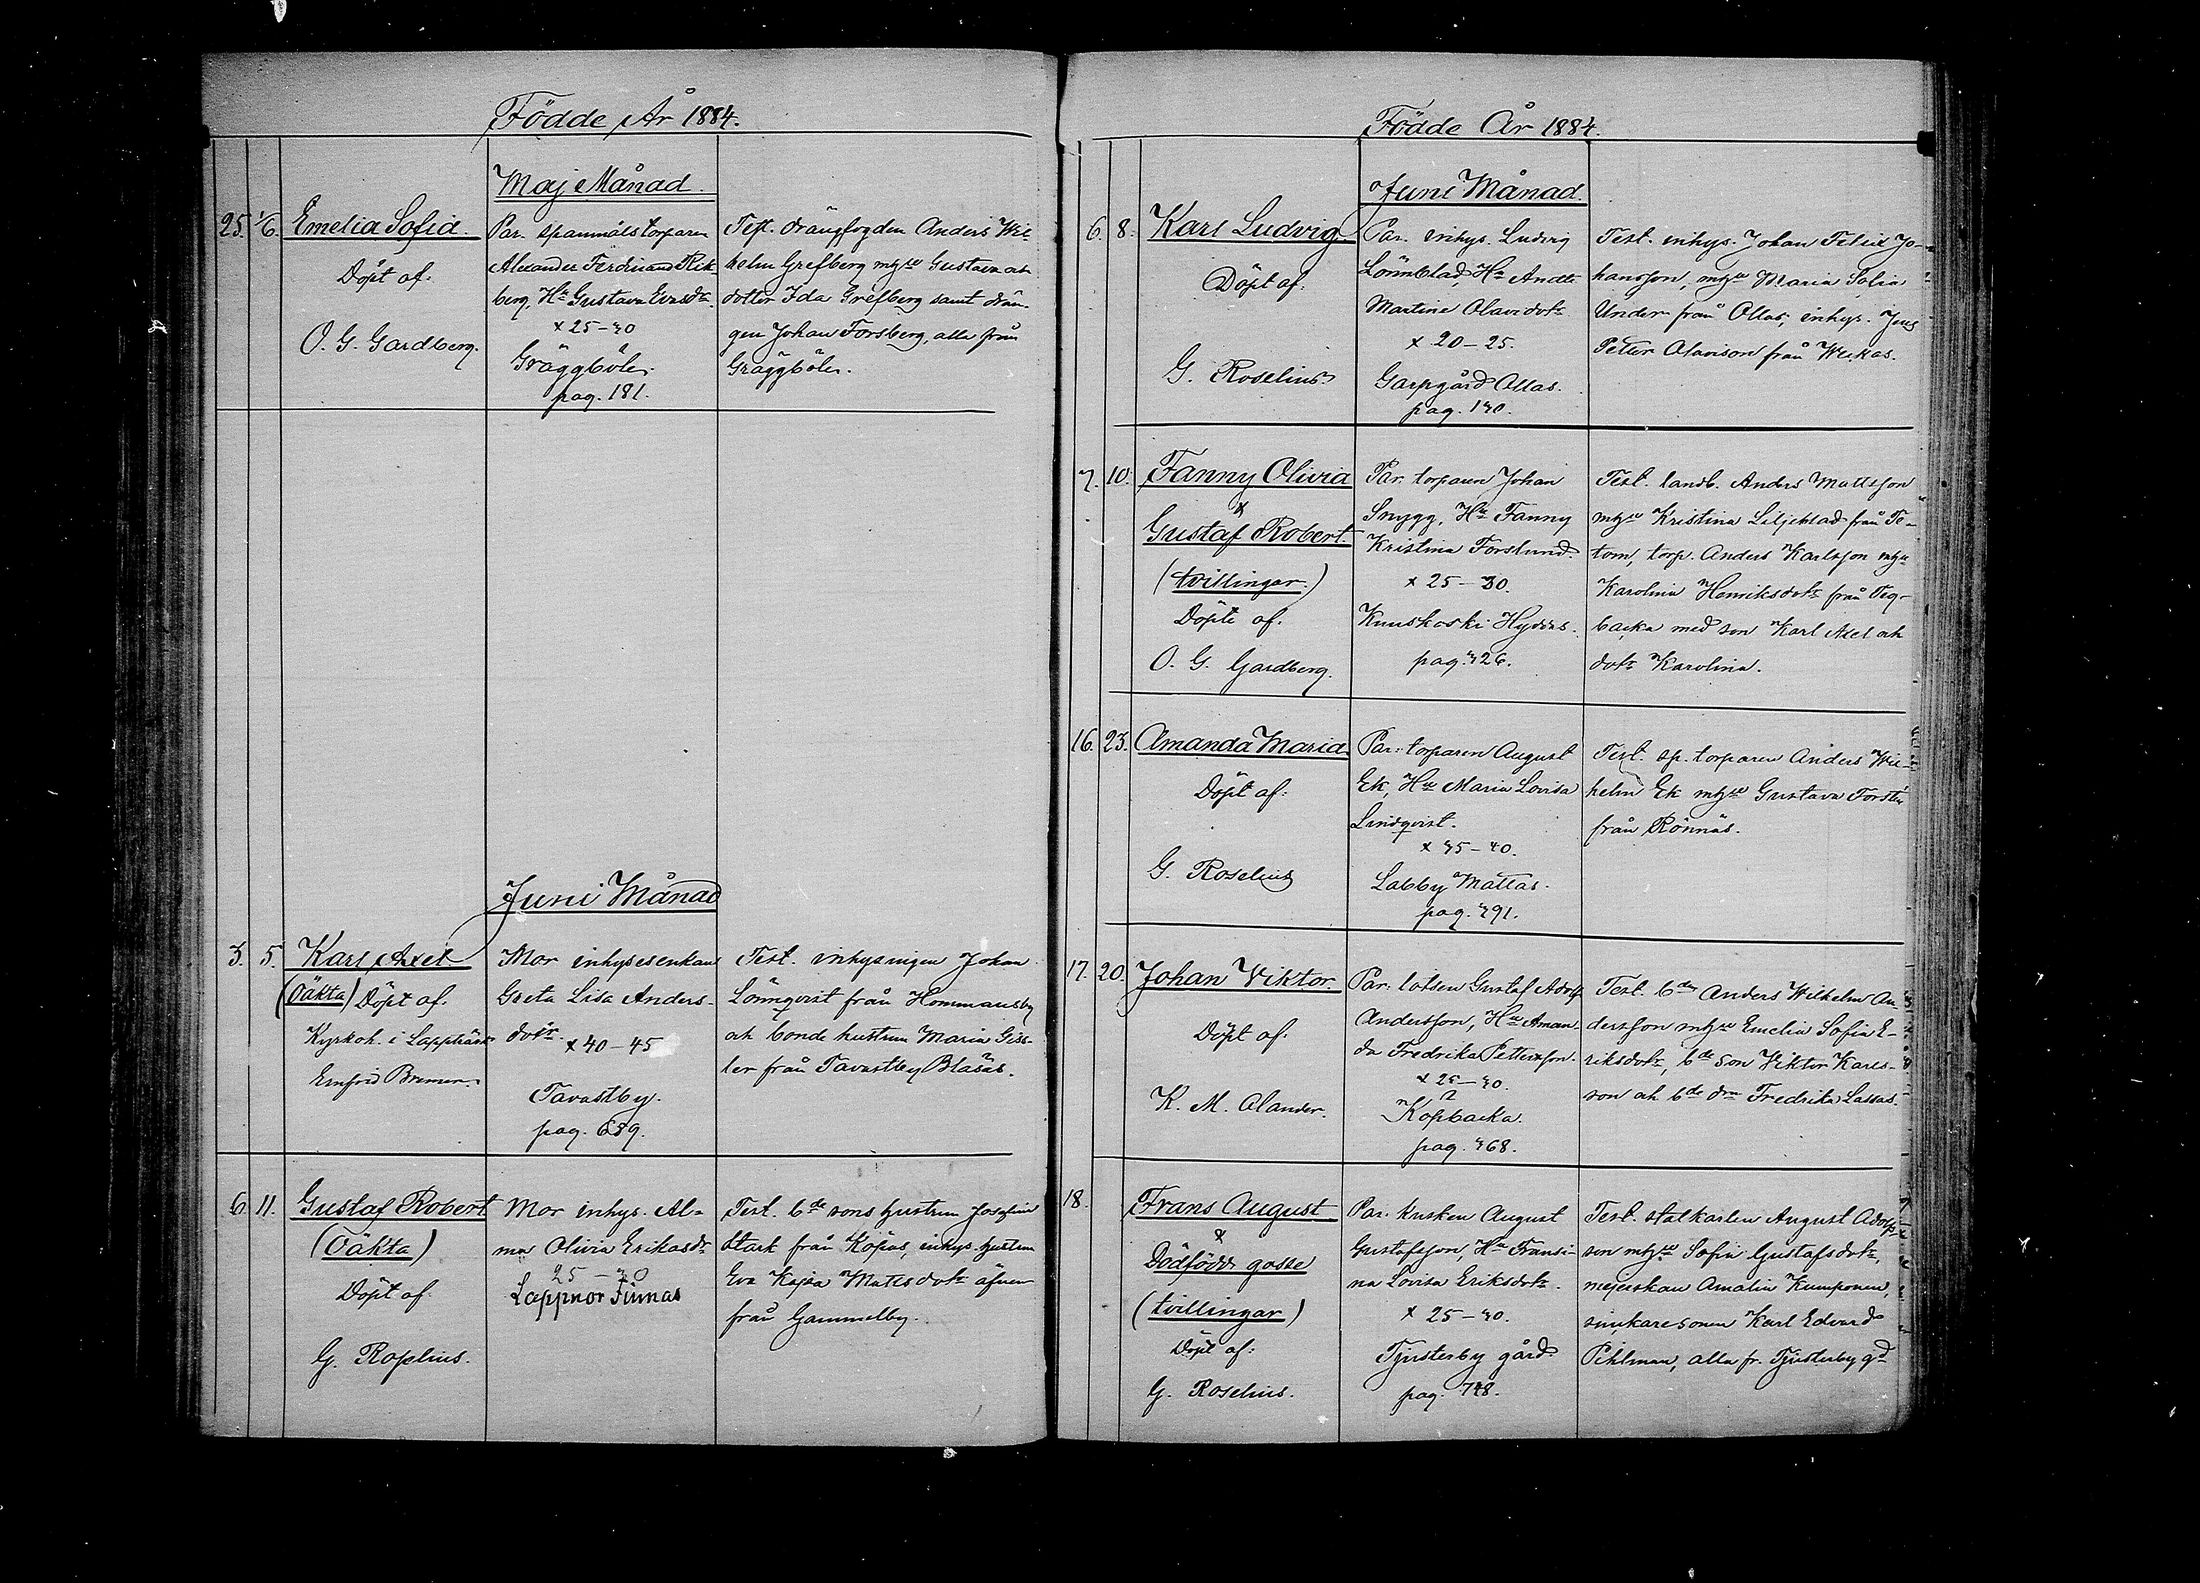 Födde År 1884.
Maj Månad.
25. 1/6. Emelia Sofia.
Döpt af.
O. G. Gardberg.
Par. spanmålstorparen
Alexander Ferdinand Rik
berg, Hu Gustava Evasdr
x 25-30
Gräggböle.
pag. 181.
Test. drängfogden Anders Wil
helm Grefberg m hu Gustava och
dotter Ida Grefberg samt drän
gen Johan Forsberg, alla från
Gräggböle.
Juni Månad
3. 5. Karl Axel
(Oäkta) Döpt af.
Kyrkoh. i Lappträsk
Emfrid Bremer.
Mor inhysesenkan
Greta Lisa Anders-
dotr x 40-45
Tavastby.
pag. 659.
Test. inhysingen Johan
Lönnqvist från Hommansby
och bonde hustrun Maria Giss-
ler från Tavastby Blasas.
6. 11. Gustaf Robert
(Oäkta)
Döpt af.
G. Roselius.
Mor inhys. Al-
ma Olivia Eriksdr
25-30
Lappnor Finnas
Test. bde sons hustrun Josefina
Stark från Kopas, inhys. hustrun
Eva Kajsa Mattsdotr äfven
från Gammelby.
Födde År 1884.
Juni Månad.
6. 8. Karl Ludvig
Döpt af.
G. Roselius.
Par. inhys. Ludvig
Lönnblad, Hu Anette
Martine Olavidotr
x 20-25.
Garpgård Ollas.
pag. 130.
Test. inhys. Johan Felix Jo-
hansson, m hu Maria Sofia
Under från Ollas, inhys. Jens
Petter Olavison från Weckas.
7. 10. Fanny Olivia
&
Gustaf Robert.
(tvillingar.)
Döpte af.
O. G. Gardberg.
Par. torparen Johan
Snygg, Hu Fanny
Kristina Forslund.
x 25-30.
Kuuskoski Hyddas.
pag. 326.
Test. landb. Anders Mattsson
m hu Kristina Liljeblad från Te-
tom, torp. Anders Karlsson m hu
Karolina Henriksdotr från Teg-
backa med son Karl Axel och
dotr Karolina.
16. 23. Amanda Maria
Döpt af.
G. Roselius
Par. torparen August
Ek, Hu Maria Lovisa
Lindqvist.
x 35-40.
Labby Mattas.
pag. 391.
Test. sp. torparen Anders Wil-
helm Ek m hu Gustava Forstén
från Rönnäs.
17. 20. Johan Viktor.
Döpt af.
K. M. Alander.
Par. lotsen Gustaf Adolf
Andersson, Hu Aman-
da Fredrika Pettersson.
x 25-30.
Kopbacka.
pag. 368.
Test. bden Anders Wilhelm An-
dersson m hu Emelia Sofia E-
riksdotr, bde son Viktor Karls-
son och bde drn Fredrika Lassas.
18. Frans August
&
Dödfödd gosse
(tvillingar)
Döpt af:
G. Roselius.
Par. kusken August
Gustafsson, Hu Fransi-
na Lovisa Eriksdotr.
x 25-30.
Tjusterby gård
pag. 748.
Test. statkarlen August Adolfs-
son m hu Sofia Gustafsdotr,
mejerskan Amalia Kumponen,
snickaresonen Karl Edvard
Pihlman, alla fr. Tjusterby gd